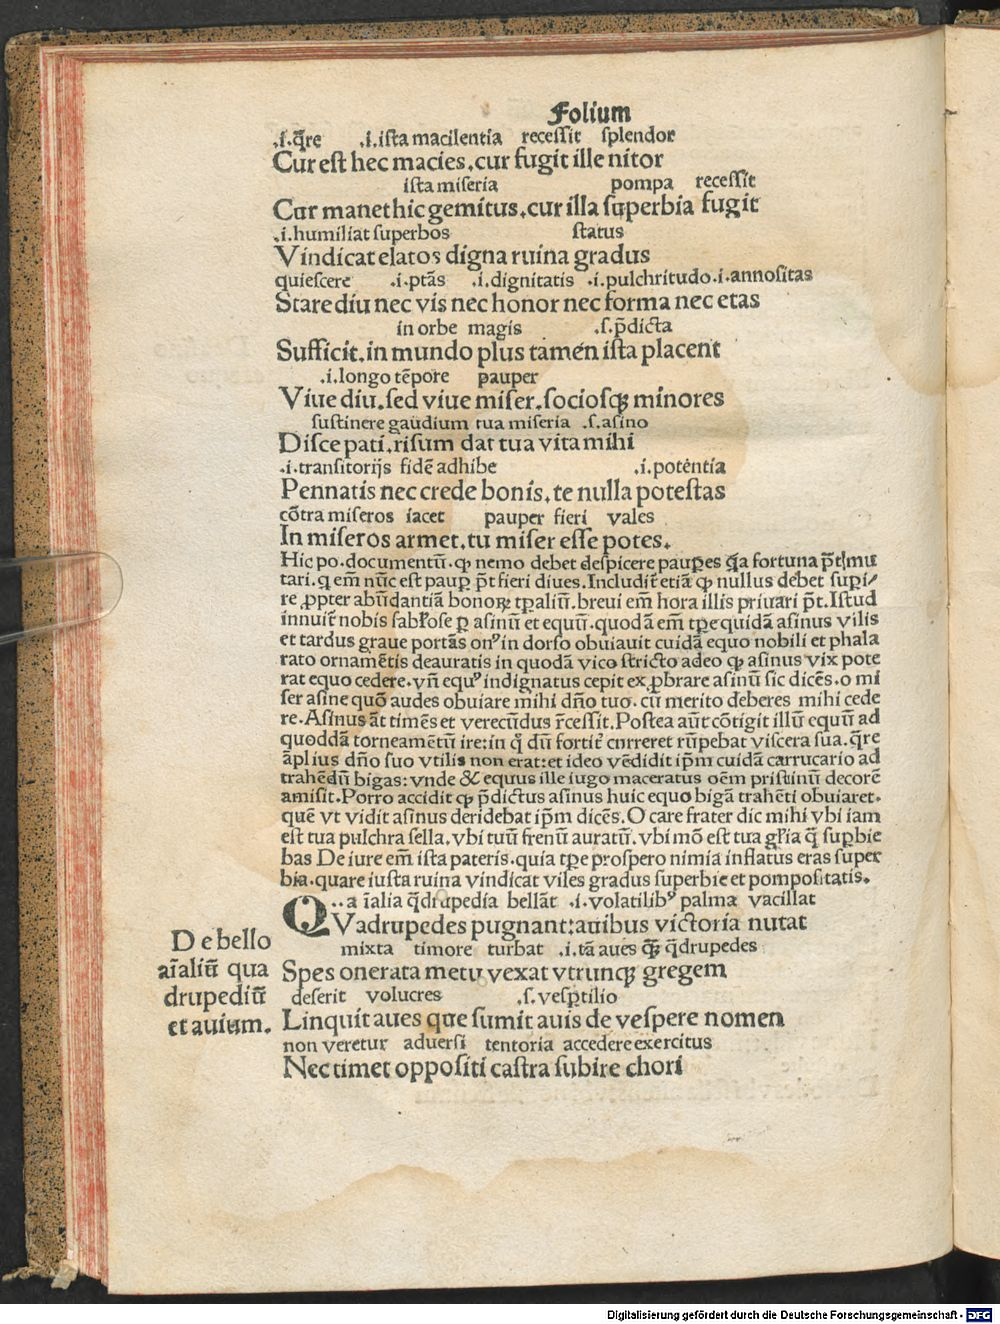 Folium
.i.q̄re .i.ista macilentia recessit splendor
Cur est hec macies.cur fugit ille nitor
ista miseria pompa recessit
Cur manet hic gemitus.cur illa superbia fugit
.i.humiliat superbos status
Vindicat elatos digna ruina gradus
quiescere .i.ptās .i.dignitatis .i.pulchritudo.i.annositas
Stare diu nec vis nec honor nec forma nec etas
in orbe magis .s.p̄dicta
Sufficit.in mundo plus tamen ista placent
.i.longo tēpore pauper
Viue diu.sed viue miser.sociosqꝫ minores
sustinere gaudium tua miseria .s.asino
Disce pati.risum dat tua vita mihi
.i.transitorijs fidē adhibe .i.potentia
Pennatis nec crede bonis.te nulla potestas
cōtra miseros iacet pauper fieri vales
In miseros armet.tu miser esse potes.
Hic po.documentū.ꝙ nemo debet despicere pauꝑes q̄a fortuna p̄t mu
tari.q em̄ nūc est pauꝑ p̄t fieri diues.Includit᷑ etiā ꝙ nullus debet suꝑi⸗
re ꝓpter abūdantiā bonoꝝ tꝑaliū.breui em̄ hora illis priuari p̄t.Istud
innuit᷑ nobis fabl̓ose ꝑ asinū et equū.quodā em̄ tꝑe quidā asinus vilis
et tardus graue portās onꝰ in dorso obuiauit cuidā equo nobili et phala
rato ornamētis deauratis in quodā vico stricto adeo ꝙ asinus vix pote
rat equo cedere.vn̄ equꝰ indignatus cepit exꝓbrare asinū sic dicēs.o mi
ser asine quō audes obuiare mihi dn̄o tuo.cū merito deberes mihi cede
re.Asinus āt timēs et verecūdus r̄cessit.Postea aūt cōtigit illū equū ad
quoddā torneamētū ire:in q̄ dū fortit᷑ curreret rūpebat viscera sua.q̄re
āplius dn̄o suo vtilis non erat:et ideo vēdidit ip̄m cuidā carrucario ad
trahēdū bigas:vnde & equus ille iugo maceratus oēm pristinū decorē
amisit.Porro accidit ꝙ p̄dictus asinus huic equo bigā trahēti obuiaret.
quē vt vidit asinus deridebat ip̄m dicēs.O care frater dic mihi vbi iam
est tua pulchra sella.vbi tuū frenū auratū.vbi mō est tua gl̓ia q̄ suꝑbie
bas De iure em̄ ista pateris.quia tꝑe prospero nimia inflatus eras super
bia.quare iusta ruina vindicat viles gradus superbie et pompositatis.
..a īalia q̄drupedia bellāt .i.volatilibꝰ palma vacillat
QVadrupedes pugnant:auibus victoria nutat
mixta timore turbat .i.tā aues qꝫ̄ q̄drupedes
Spes onerata metu vexat vtrunqꝫ gregem
deserit volucres .s.vesꝑtilio
Linquit aues que sumit auis de vespere nomen
non veretur aduersi tentoria accedere exercitus
Nec timet oppositi castra subire chori
De bello
aīaliū qua
drupediū
et auium.
Digitalisierung gefördert durch die Deutsche Forschungsgemeinschaft - DFG